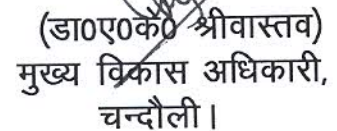 (डा०ए०के० श्रीवास्तव)
मुख्य विकास अधिकारी,
चन्दौली।